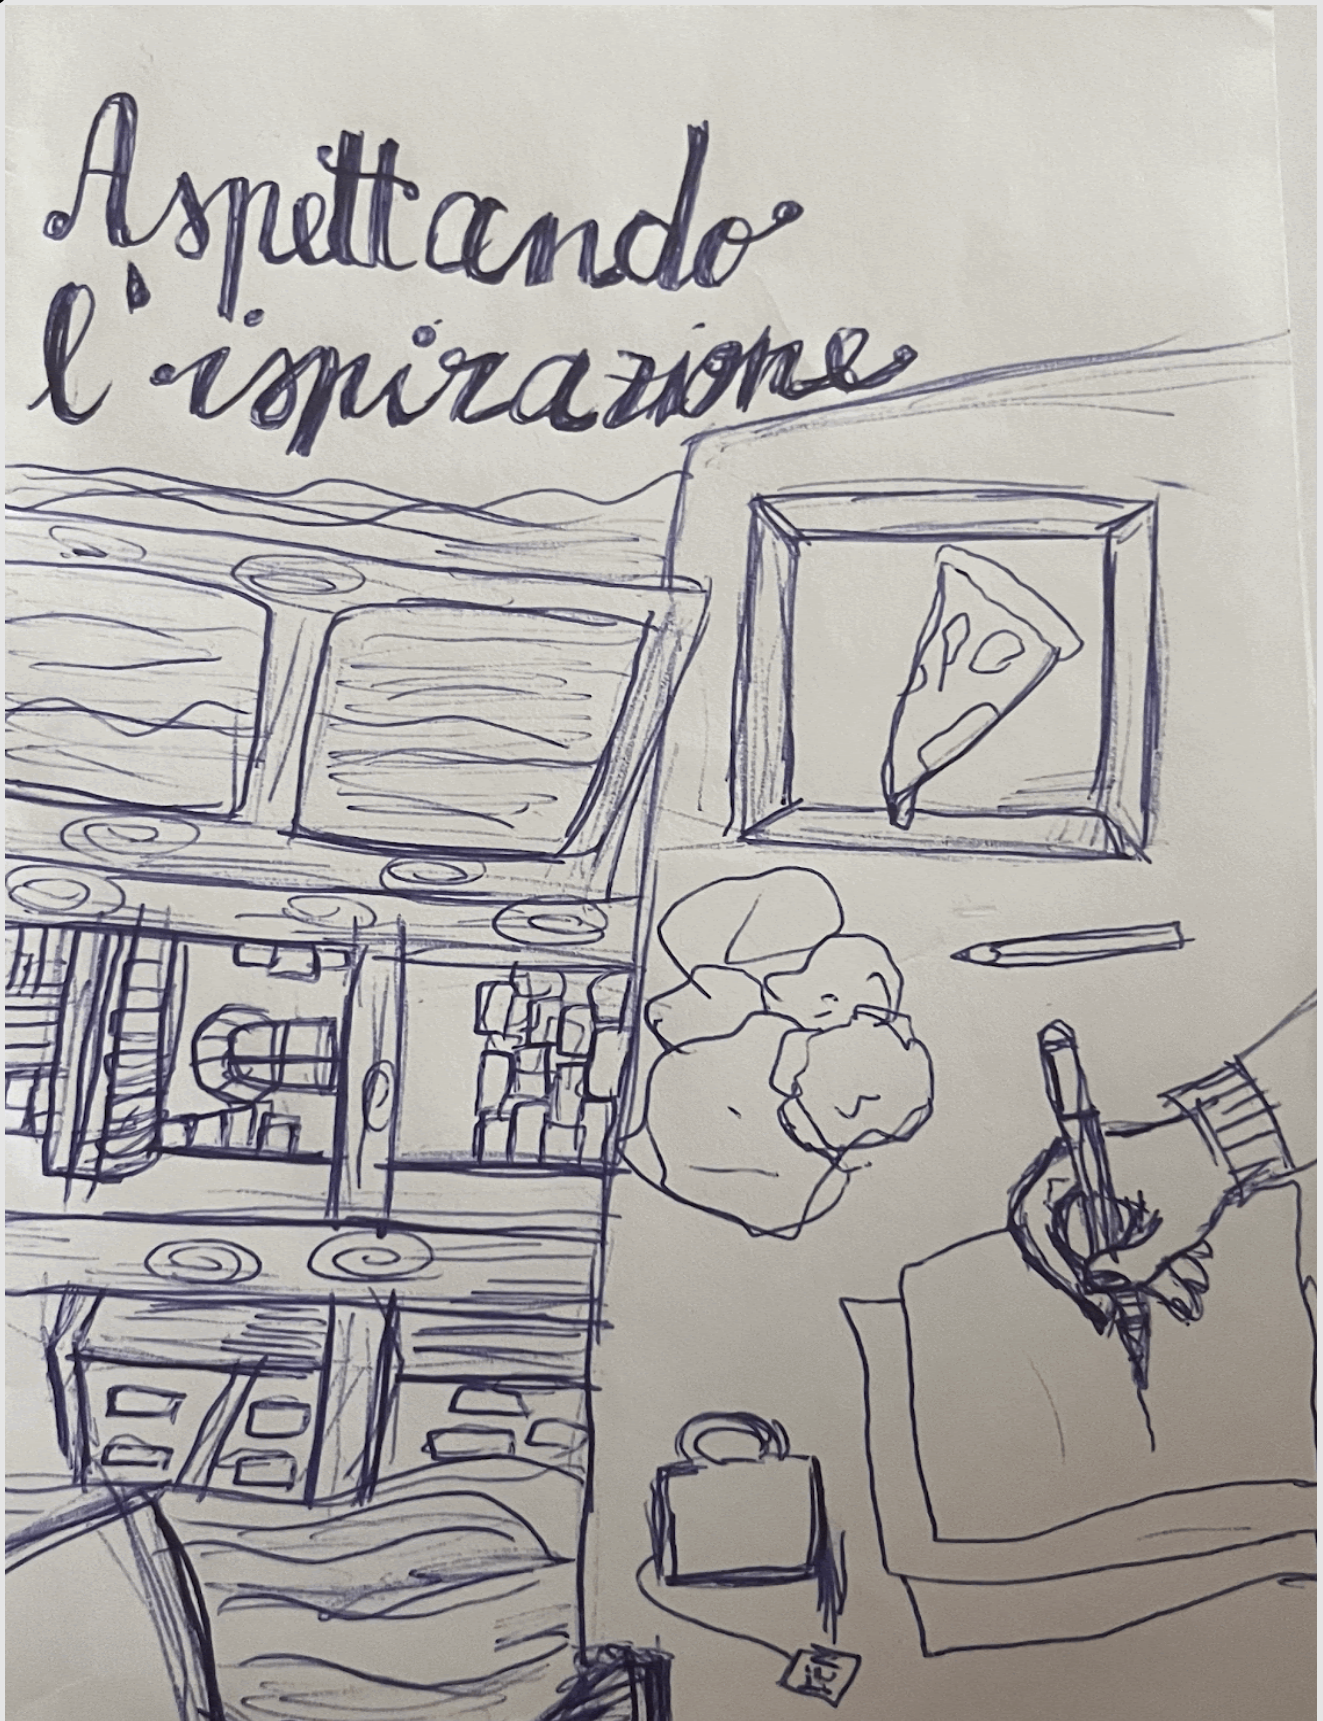 Aspettando
l'ispirazione